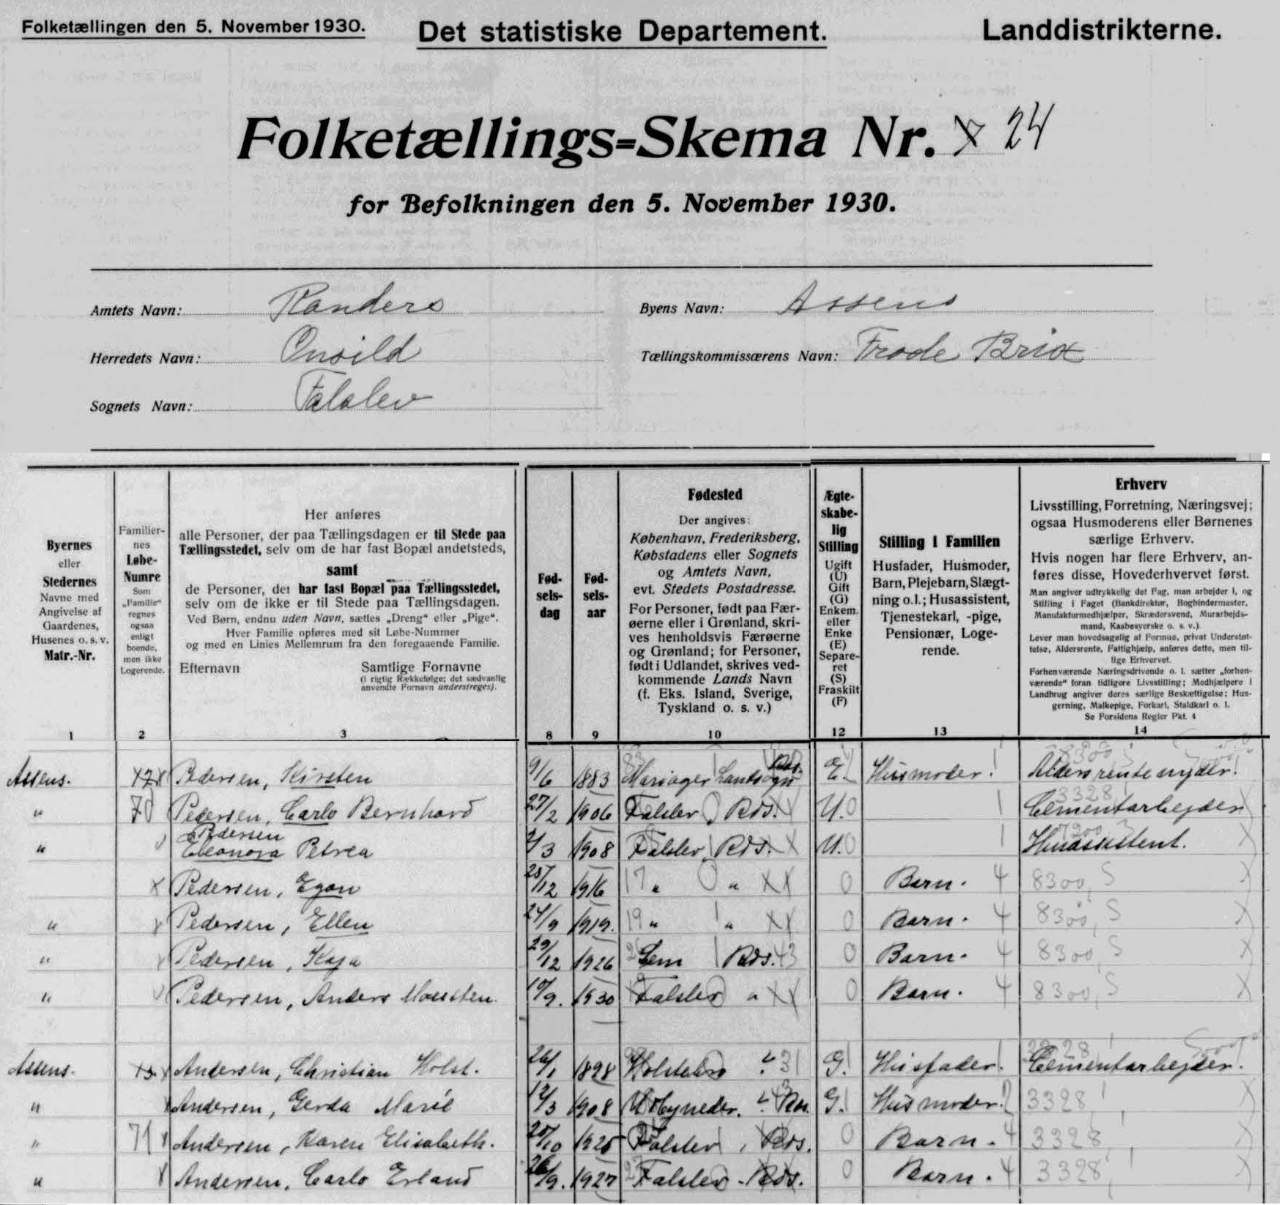 Folketællingen den 5. November 1930.
Det statistiske Departement.
Landdistrikterne.
Folketællings=Skema Nr. 24
for Befolkningen den 5. November 1930.
Amtets Navn: Randers
Byens Navn: Assens
Herredets Navn: Onsild
Tællingskommissærens Navn: Frode Brix
Sognets Navn: Falslev
Byernes
eller
Stedernes
Navne med
Angivelse af
Gaardenes,
Husenes o. s. v.
Matr.-Nr.
1
Familier-
nes
Løbe-
Numre
Som
„Familie“
regnes
ogsaa
enligt
boende,
men ikke
Logerende.
2
Her anføres
alle Personer, der paa Tællingsdagen er til Stede paa
Tællingsstedet, selv om de har fast Bopæl andetsteds,
samt
de Personer, der har fast Bopæl paa Tællingsstedet,
selv om de ikke er til Stede paa Tællingsdagen.
Ved Børn, endnu uden Navn, sættes „Dreng“ eller „Pige“.
Hver Familie opføres med sit Løbe-Nummer
og med en Linies Mellemrum fra den foregaaende Familie.
Efternavn
Samtlige Fornavne
(i rigtig Rækkefølge; det sædvanlig
anvendte Fornavn understreges).
3
Fød-
sels-
dag
8
Fød-
sels-
aar
9
Fødested
Der angives:
København, Frederiksberg,
Købstadens eller Sognets
og Amtets Navn,
evt. Stedets Postadresse.
For Personer, født paa Fær-
øerne eller i Grønland, skri-
ves henholdsvis Færøerne
og Grønland; for Personer,
født i Udlandet, skrives ved-
kommende Lands Navn
(f. Eks. Island, Sverige,
Tyskland o. s. v.)
10
Ægte-
skabe-
lig
Stilling
Ugift
(U)
Gift
(G)
Enkem.
eller
Enke
(E)
Separe-
ret
(S)
Fraskilt
(F)
12
Stilling i Familien
Husfader, Husmoder,
Barn, Plejebarn, Slægt-
ning o. l.; Husassistent,
Tjenestekarl, -pige,
Pensionær, Loge-
rende.
13
Erhverv
Livsstilling, Forretning, Næringsvej;
ogsaa Husmoderens eller Børnenes
særlige Erhverv.
Hvis nogen har flere Erhverv, an-
føres disse, Hovederhvervet først.
Man angiver udtrykkelig det Fag, man arbejder i, og
Stilling i Faget (Bankdirektør, Bogbindermester,
Manufakturmedhjælper, Skrædersvend, Murarbejds-
mand, Kasbesyerske o. s. v.).
Lever man hovedsagelig af Formue, privat Understøt-
telse, Aldersrente, Fattighjælp, anføres dette, men til-
lige Erhvervet.
Forhenværende Næringsdrivende o. l. sætter „forhen-
værende“ foran tidligere Livsstilling; Medhjælpere i
Landbrug angiver deres særlige Beskæftigelse: Hus-
gerning, Malkepige, Forkarl, Staldkarl o. l.
Se Forsidens Regler Pkt. 4
14
Assens. Pedersen, Kirsten 9/6 1883 Mariager Landsogn Rds. E. Husmoder. 1 Aldersrentenyder.
" 70 Pedersen, Carlo Bernhard 27/2 1906 Falslev Rds. U. 0 1 3328 Cementarbejder
" Pedersen Eleonora Petrea 2/3 1908 Falslev, Rds. U. 0 1 Husassistent.
Pedersen, Egon 25/12 1916 17 " 0 " XX 0 Barn. 4 8300, S X
" Pedersen, Ellen 24/9 1919. 19 " 1 " XX 0 Barn. 4 8300, S X
" Pedersen, Kaja 29/12 1926 Lem 1 Rds. 43 0 Barn. 4 8300 S X
" Pedersen, Anders Morsten. 10/9. 1930 Falslev " XX 0 Barn. 4 8300, S X
Assens. Andersen, Christian Holst. 26/1 1898 Holstebro 31 G. Husfader. 1 3328 Cementarbejder.
" Andersen, Gerda Marie 12/3 1908 Rds. G. Husmoder. 2 3328 X
" 71 Andersen, Karen Elisabeth. 20/10 1925 Falslev, Rds. 0 Barn. 4 3328 X
" Andersen, Carlo Erland 26/9. 1927 Falslev - Rds. 0 Barn. 4 3328 X